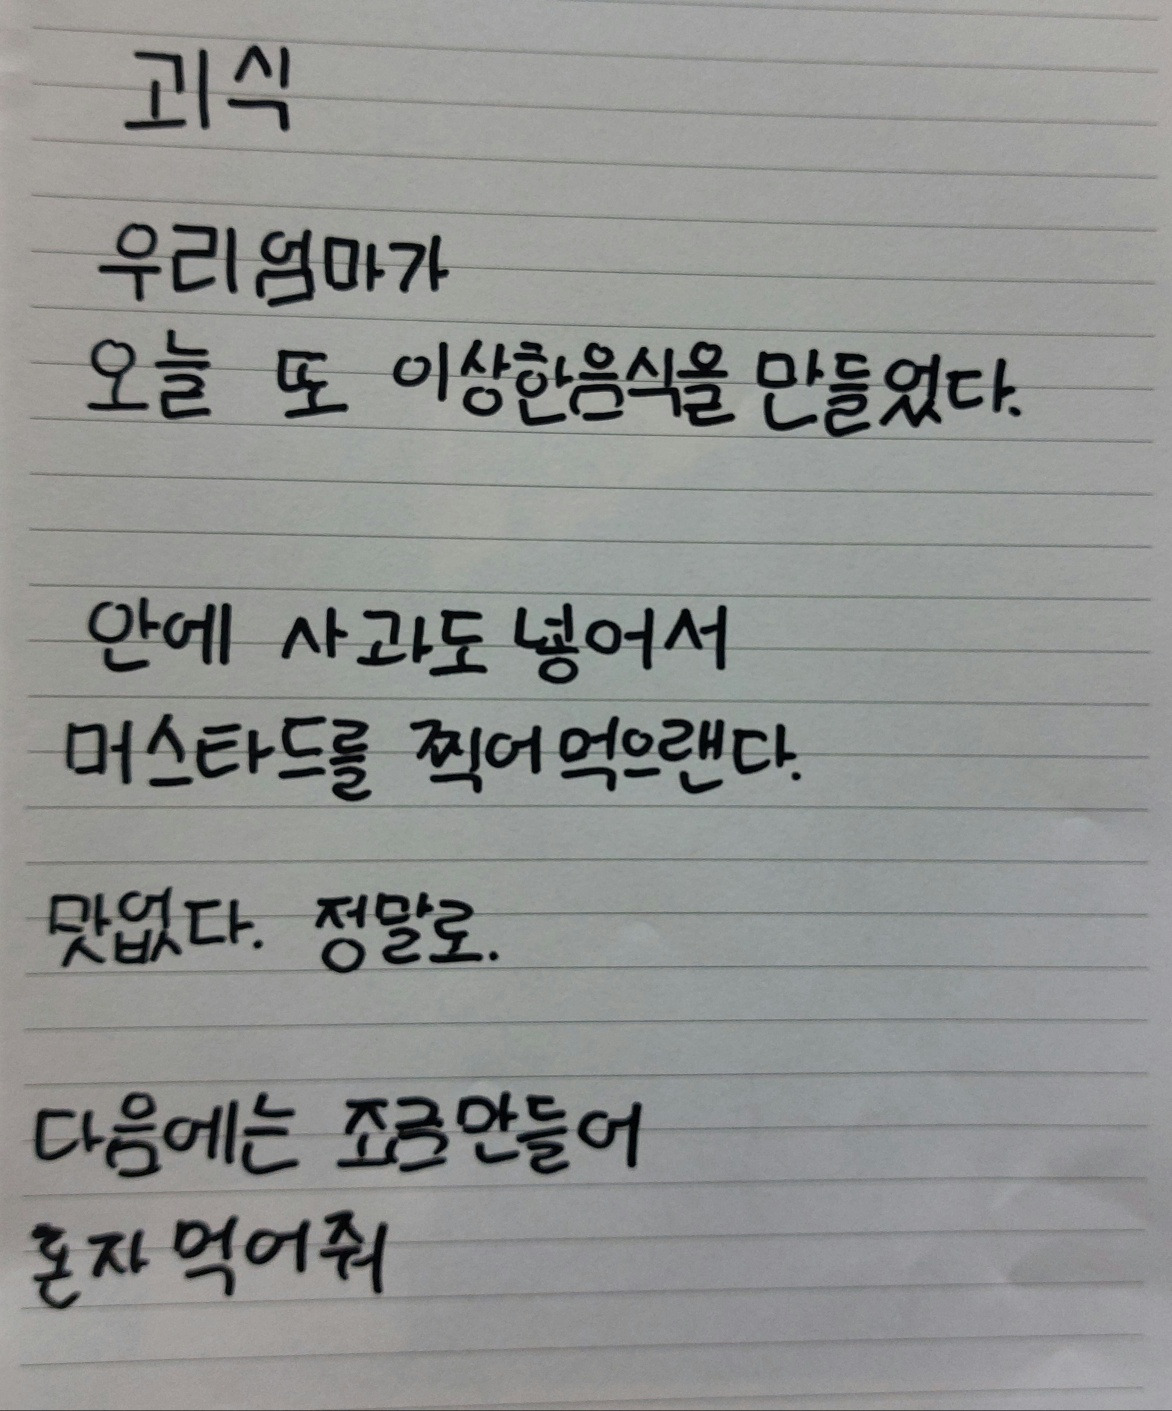 괴식
우리엄마가
오늘 또 이상한음식을 만들었다.
안에 사과도 넣어서
머스타드를 찍어먹으랜다.
맛없다. 정말로.
다음에는 조금만들어
혼자먹어줘